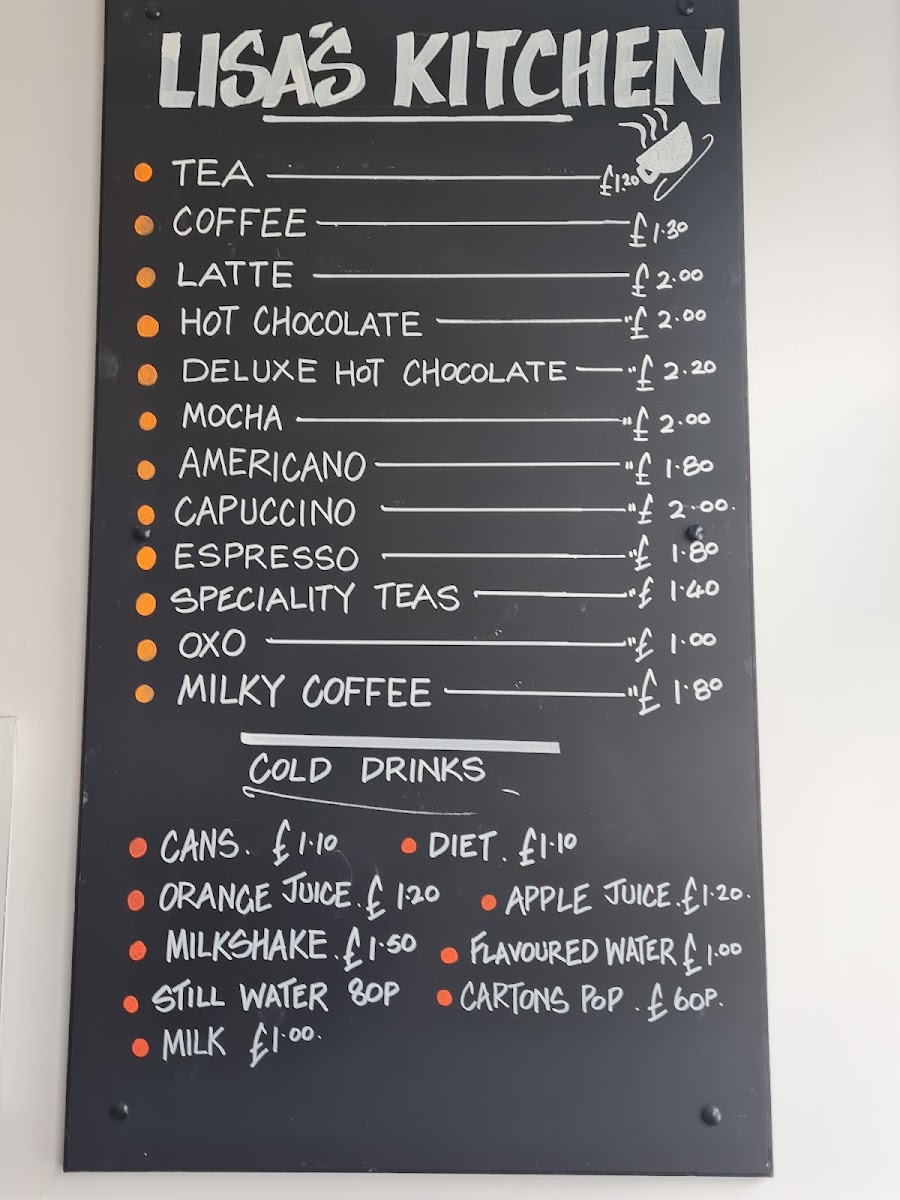 LISA'S KITCHEN
TEA £1.20
COFFEE £1.30
LATTE £2.00
HOT CHOCOLATE "£2.00
DELUXE HOT CHOCOLATE "£2.20
MOCHA "£2.00
AMERICANO "£1.80
CAPUCCINO "£2.00.
ESPRESSO "£1.80
SPECIALITY TEAS "£1.40
OXO "£1.00
MILKY COFFEE "£1.80
COLD DRINKS
CANS. £1.10 DIET. £1.10
ORANGE JUICE. £1.20 APPLE JUICE. £1.20.
MILKSHAKE. £1.50 FLAVOURED WATER £1.00
STILL WATER 80P CARTONS POP. £60P.
MILK £1.00.